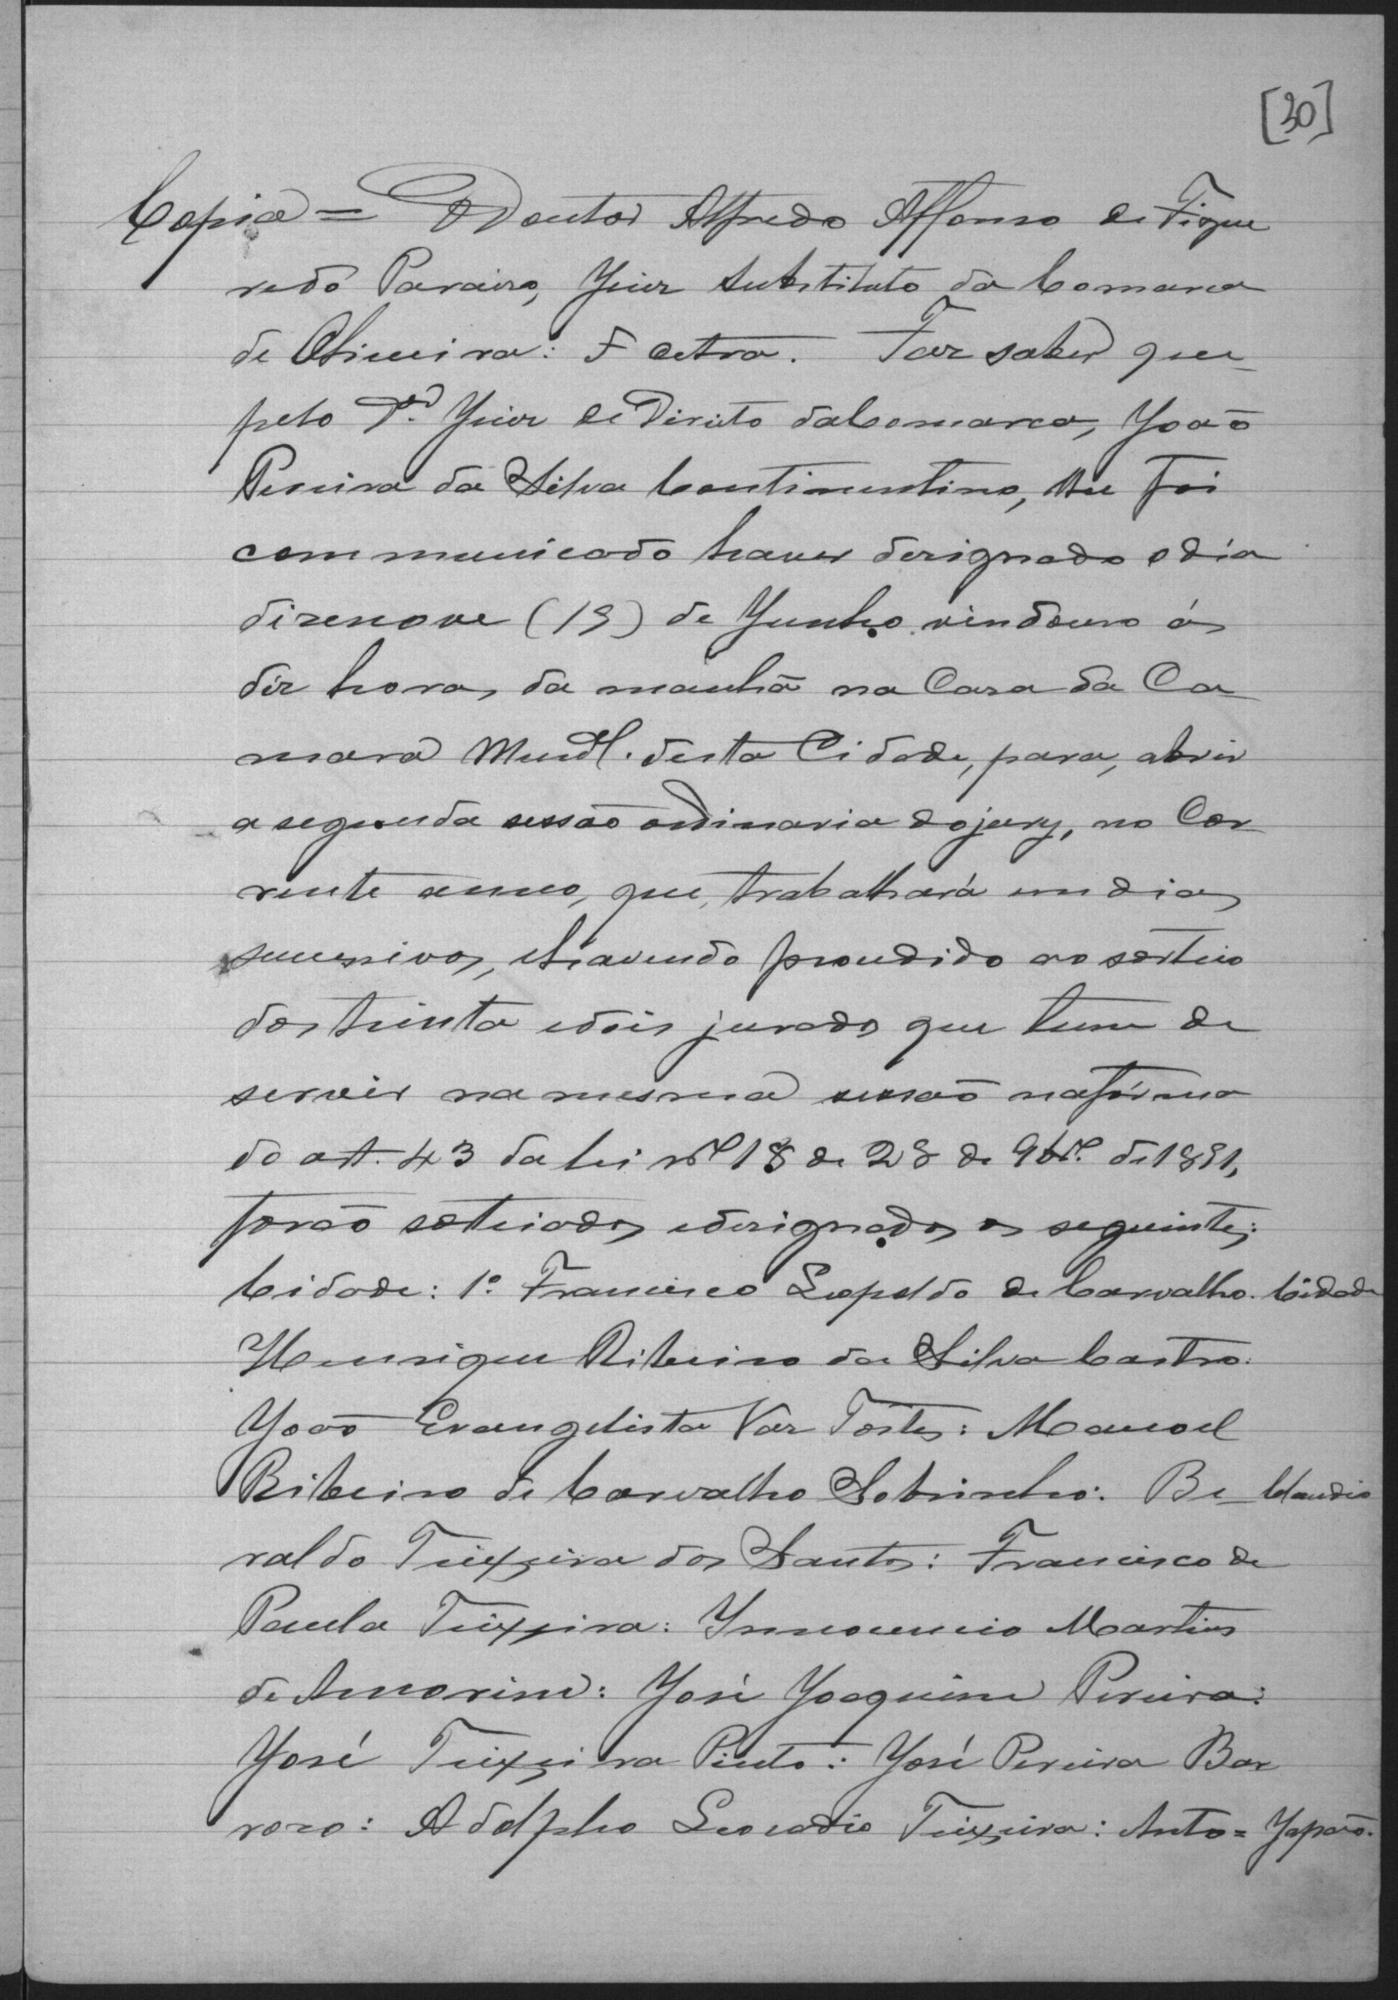 [30]
Copia = O Doutor Alfredo Affonso de Figue
redo Paraiso, Juiz substituto da Comarca
de Oliveira: Et Cetra. Faz saber que
pelo Dr. Juiz de Direito da Comarca, João
Pereira da Silva Continentino, lhe foi
communicado haver designado o dia
dizenove (19) de Junho vindouro ás
déz horas da manhã na Casa da Ca
mara Munal. desta Cidade, para, abrir
a segunda sessão ordinaria do jury, no Cor
rente anno, que, trabalhará em dias
sucessivos, e havendo procedido ao sorteio
dos trinta e dois jurados que tem de
servir na mesma sessão na fórma
do art. 43 da lei nº 18 de 28 de 9brº. de 1891,
forão sorteiados e designados os seguintes:
Cidade: 1º. Francisco Leopoldo de Carvalho. Cidade
Henrique Ribeiro da Silva Castro:
João Evangelista Vaz Tostes: Manoel
Ribeiro de Carvalho Sobrinho: Be_ Claudio
raldo Teixeira dos Santos: Francisco de
Paula Teixeira: Innocencio Martins
de Amorim: José Joaquim Pereira:
José Teixeira Pinto: José Pereira Bar
rozo: Adolpho Leocadio Teixeira: Anto= Japão.